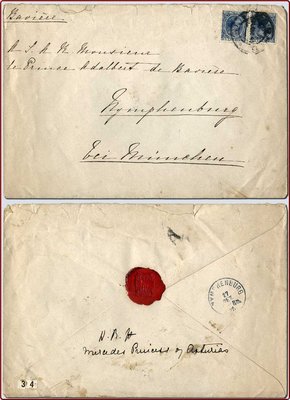 Bavière
A S. A. R. Monsieur
le Prince Adalbert de Bavière
Nymphenburg
bei München
NYMPHENBURG
17
H. R. H
Mercedes Princess of Asturias
34